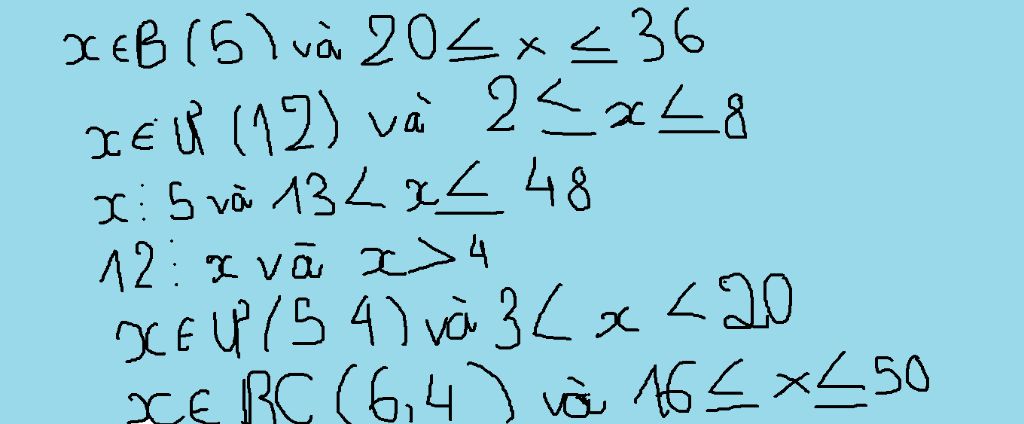 x ∈ B (5) và 20 ≤ x ≤ 36
x ∈ Ư (12) và 2 ≤ x ≤ 8
x ⋮ 5 và 13 < x ≤ 48
12 ⋮ x và x > 4
x ∈ Ư (54) và 3 < x < 20
x ∈ BC (6,4) và 16 ≤ x ≤ 50